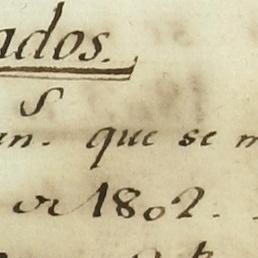 ados.
S
an. que se m
or 1802.